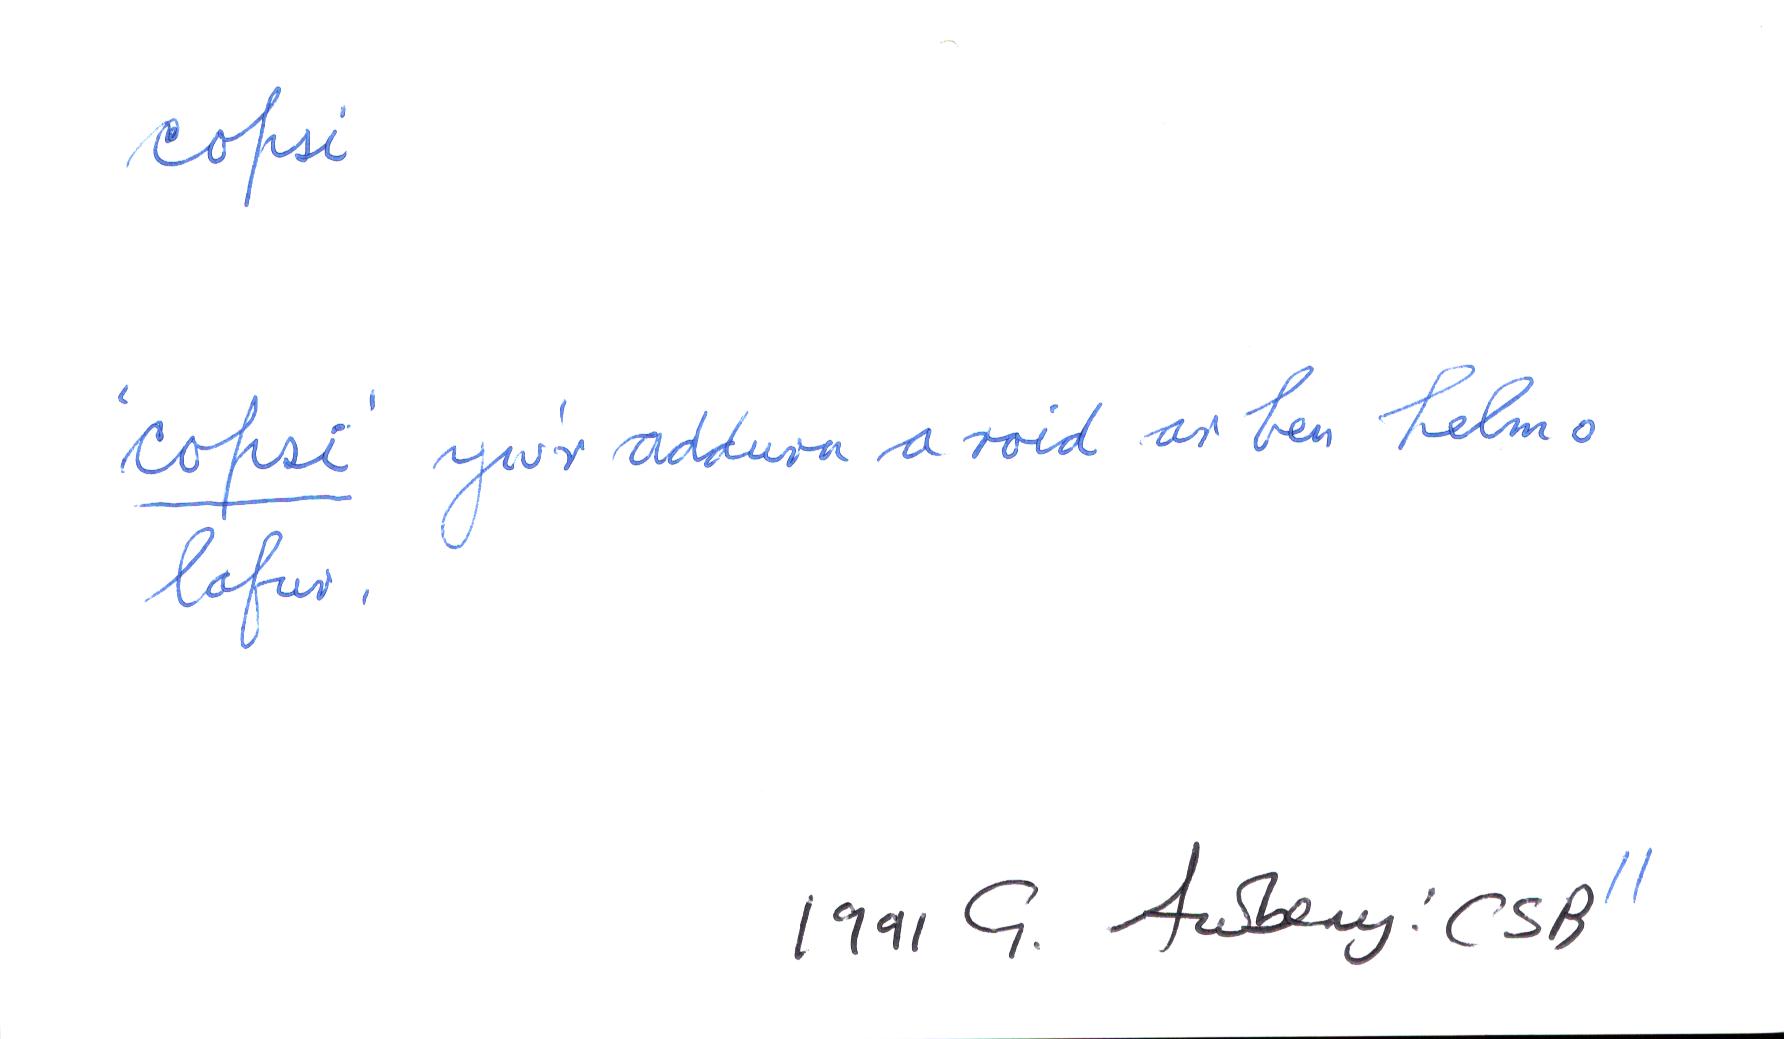 copsi
'copsi' yw'r addurn a roid ar ben helm o
lafur.
1991 G. Awbery: CSB 11